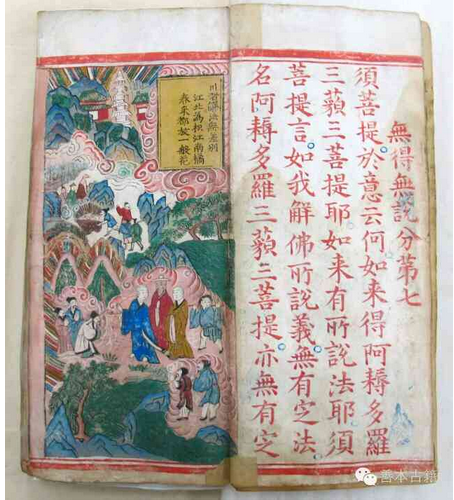 無得無說分第七
須菩提於意云何如来得阿耨多羅
三藐三菩提耶如来有所說法耶須
菩提言如我解佛所說義無有定法
名阿耨多羅三藐三菩提亦無有定
川 法無差別
江北為枳江南橘
春來都放一般花
善本古籍